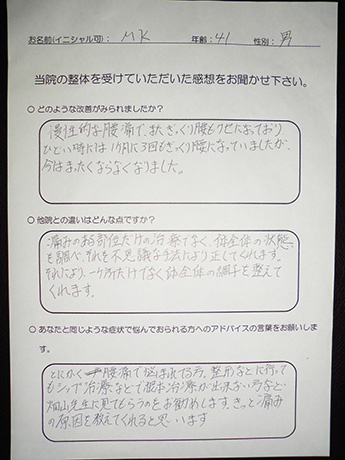 お名前(イニシャル可)： MK 年齢：41 性別：男
当院の整体を受けていただいた感想をお聞かせ下さい。
○ どのような改善がみられましたか？
慢性的な腰痛で、また、ぎっくり腰もクセになっており
ひどい時には1ヶ月に3回もぎっくり腰になっていましたが、
今はまったくならなくなりました。
○ 他院との違いはどんな点ですか？
痛みのある部位だけの治療でなく、体全体の状態
を調べ、それを不思議な手法により正してくれます。
それにより、一ヶ所だけでなく体全体の調子を整えて
くれます。
○ あなたと同じような症状で悩んでおられる方へのアドバイスの言葉をお願いしま
す。
とにかく 腰痛で悩まれてる方、整形などに行って
もシップ治療などで根本治療が出来ない方など
畑山先生に見てもらうのをお勧めします。きっと痛み
の原因を教えてくれると思います